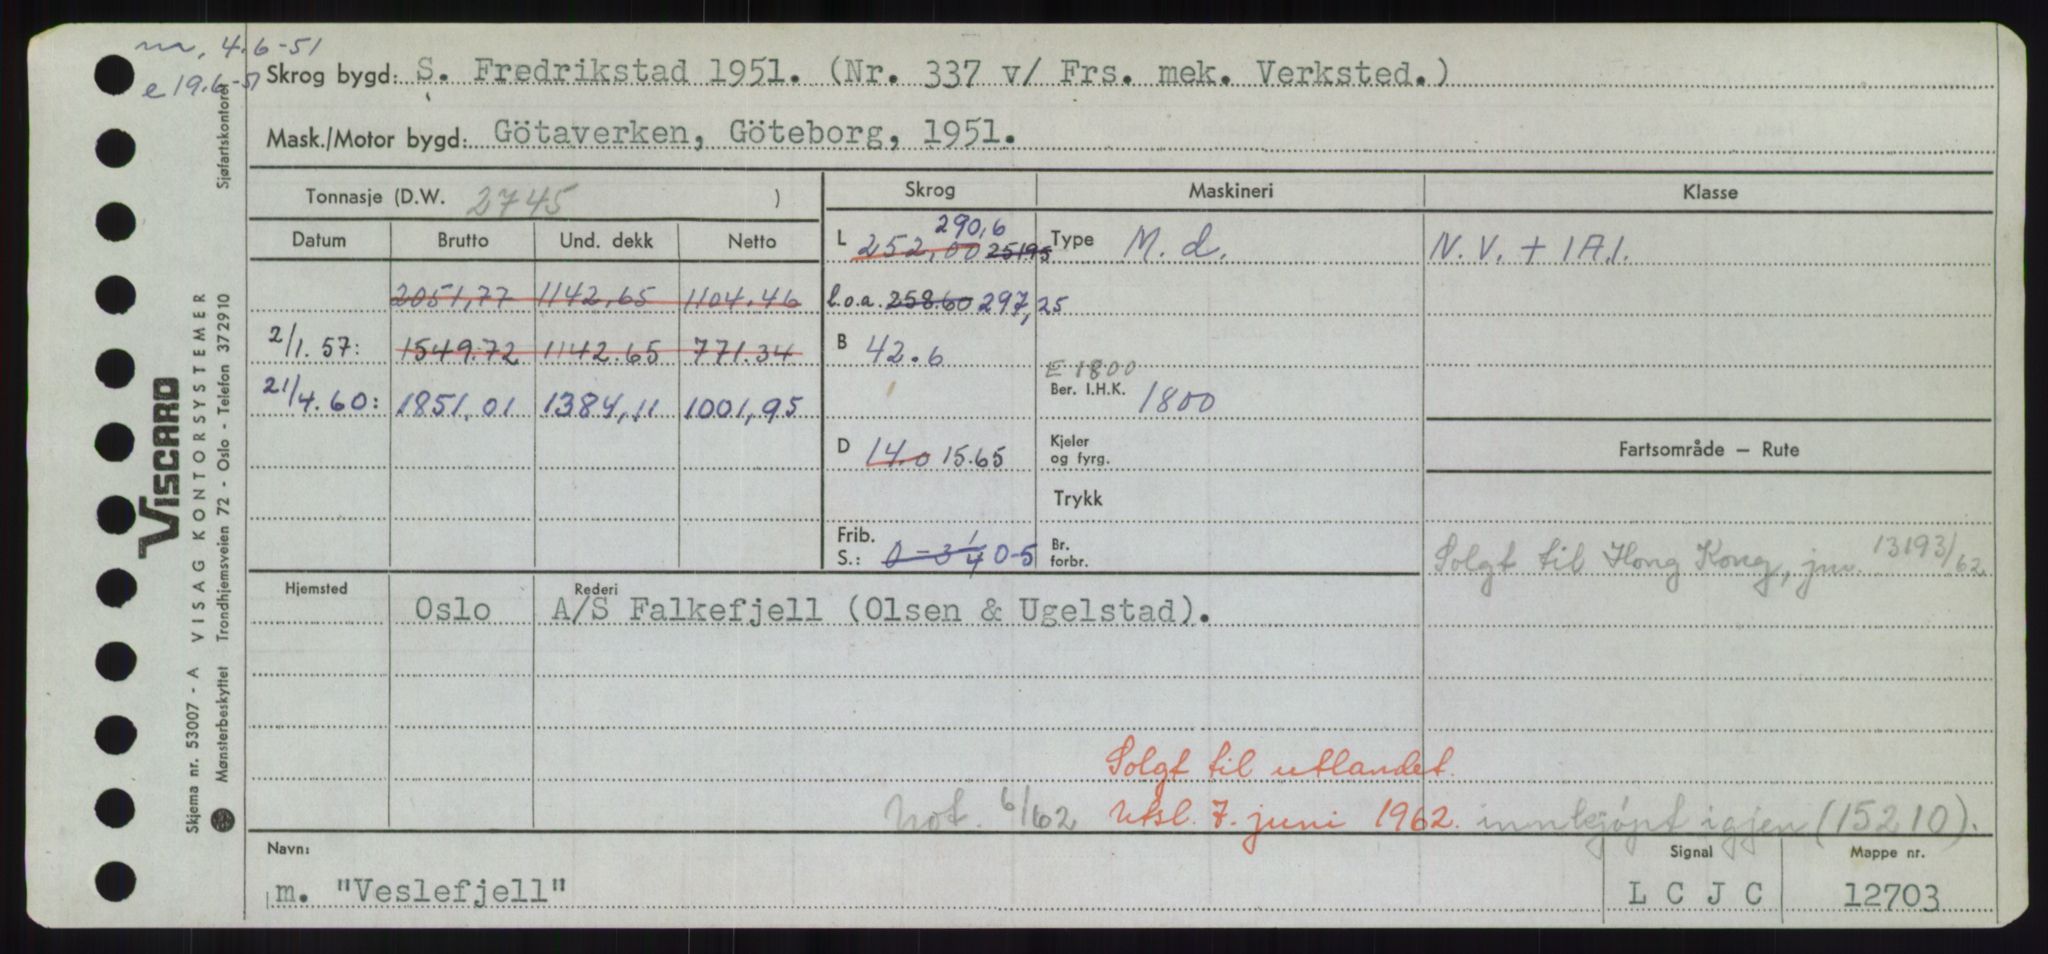 m, 4.6-51
e 19.6-51
Skrog bygd: S. Fredrikstad 1951. (Nr. 337 v/ Frs. mek. Verksted.)
Mask./Motor bygd: Götaverken, Göteborg, 1951.
Tonnasje (D.W. 2745 )
Skrog Maskineri Klasse
Datum Brutto Und. dekk Netto
290,6
L 252,00 251.95 Type M. d. N. V. + 1A1.
2051,77 1142,65 1104.46 l.o.a. 258.60 297,25
2/1. 57: 1549.72 1142.65 771.34 B 42.6
E 1800
21/4. 60: 1851,01 1384,11 1001,95 Ber. I.H.K. 1800
D 14.0 15.65 Kjeler og fyrg. Fartsområde – Rute
Trykk
Frib. S.: 0-3 1/4 0-5 Br. forbr. Solgt til Hong Kong, jnr. 13193/62
Hjemsted Rederi
Oslo A/S Falkefjell (Olsen & Ugelstad).
Solgt til utlandet.
Not. 6/62 Utsl. 7. juni 1962. innkjøpt igjen (15210).
Navn: Signal Mappe nr.
m. "Veslefjell" L C J C 12703
Sjøfartskontoret
VISCARD
VISAG KONTORSYSTEMER
Trondhjemsveien 72 - Oslo - Telefon 372910
Skjema nr. 53007 - A
Mønsterbeskyttet